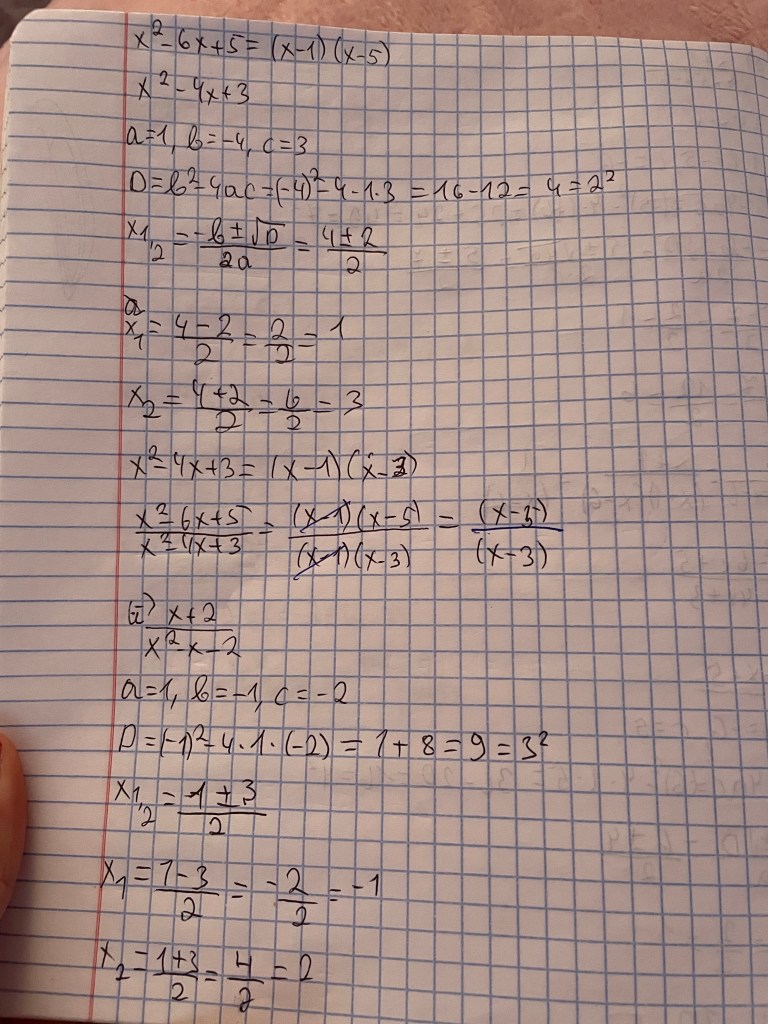 x²-6x+5=(x-1)(x-5)
x²-4x+3
a=1, b=-4, c=3
D=b²-4ac=(-4)²-4-1·3=16-12=4=2²
x₁,₂=(-b±√D)/2a=(4±2)/2
x₁=(4-2)/2=2/2=1
x₂=(4+2)/2=6/2=3
x²-4x+3=(x-1)(x-3)
(x²-6x+5)/(x²-4x+3)=((x-1)(x-5))/((x-1)(x-3))=(x-5)/(x-3)
(x+2)/(x²-x-2)
a=1, b=-1, c=-2
D=(-1)²-4·1·(-2)=1+8=9=3²
x₁,₂=(1±3)/2
x₁=(1-3)/2=-2/2=-1
x₂=(1+3)/2=4/2=2